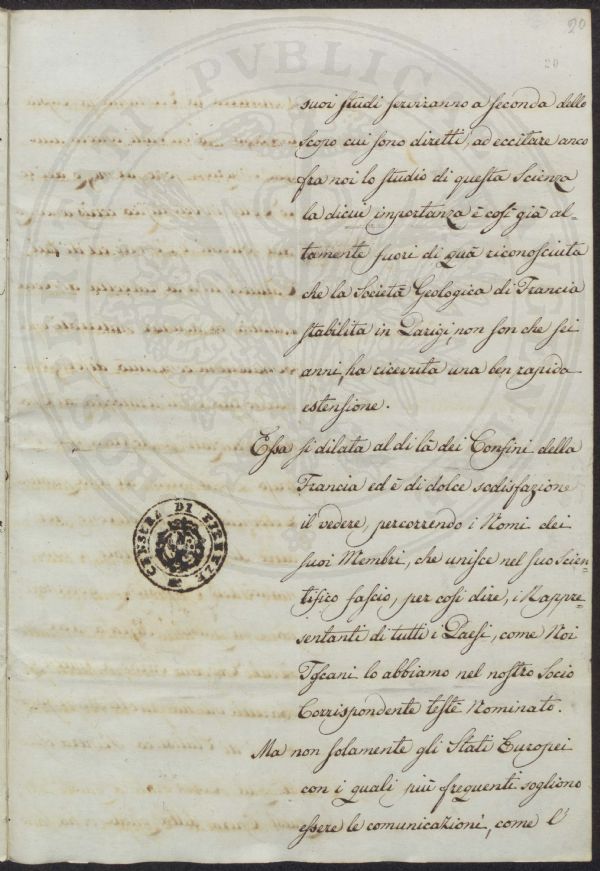 20
20
suoi studi serviranno a seconda dello
scopo cui sono diretti, ad eccitare anco
fra noi lo studio di questa Scienza
la dicui importanza è così già al-
tamente fuori di quà riconosciuta
che la Società Geologica di Francia
stabilita in Parigi, non son che sei
anni, ha ricevuta una ben rapida
estensione.
Essa si dilata al di là dei Confini della
Francia ed è di dolce sodisfazione
il vedere, percorrendo i Nomi dei
suoi Membri, che unisce nel suo scien-
tifico fascio, per così dire, i Rappre-
sentanti di tutti i Paesi, come Noi
Toscani lo abbiamo nel nostro Socio
Corrispondente testè Nominato.
Ma non solamente gli Stati Europei
con i quali più frequenti sogliono
essere le comunicazioni, come l'
CENSURA DI FIRENZE